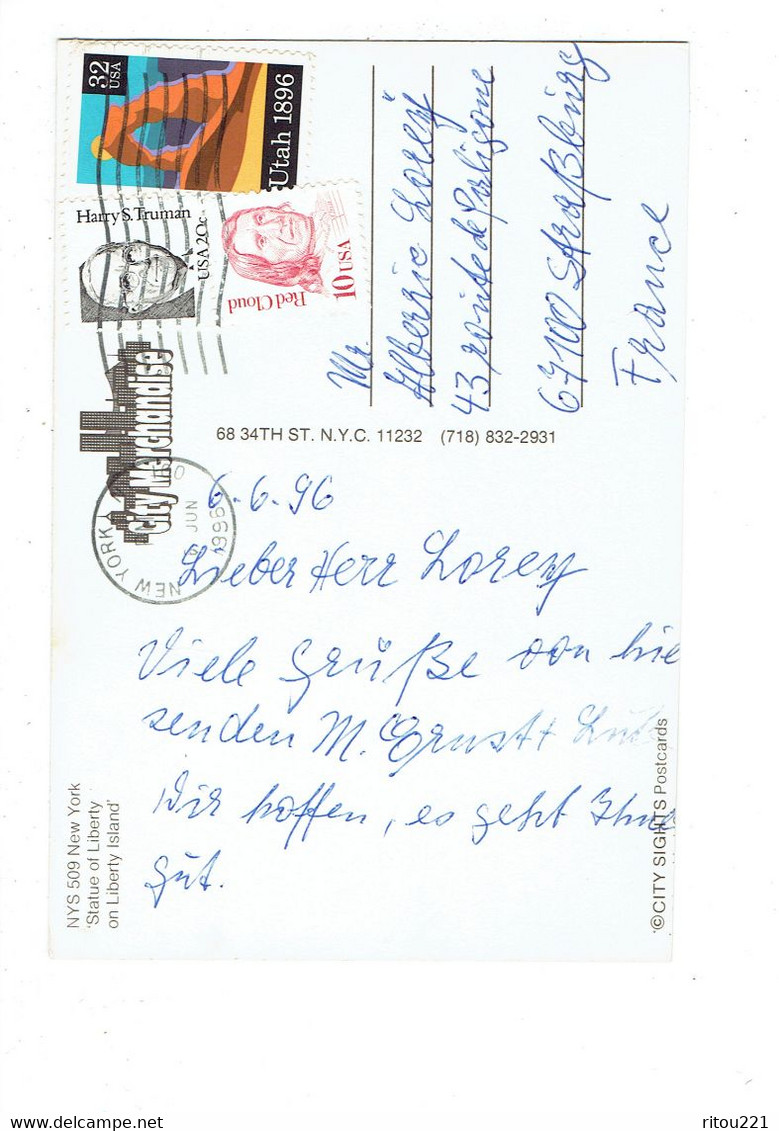 32
USA
Utah 1896
Harry S. Truman
USA 20c
Red Cloud
10 USA
City Merchandise
NEW YORK
JUN
1996
68 34TH ST. N.Y.C. 11232 (718) 832-2931
Mr.
Alberric Lorey
43 route de Poligone
67100 Straßburg
France
6.6.96
Lieber Herr Lorey
Viele Grüße von hie
senden M. Ernst +
Wir hoffen, es geht Ihne
gut.
NYS 509 New York
'Statue of Liberty
on Liberty Island'
©CITY SIGHTS Postcards
delcampe.net
ritou221